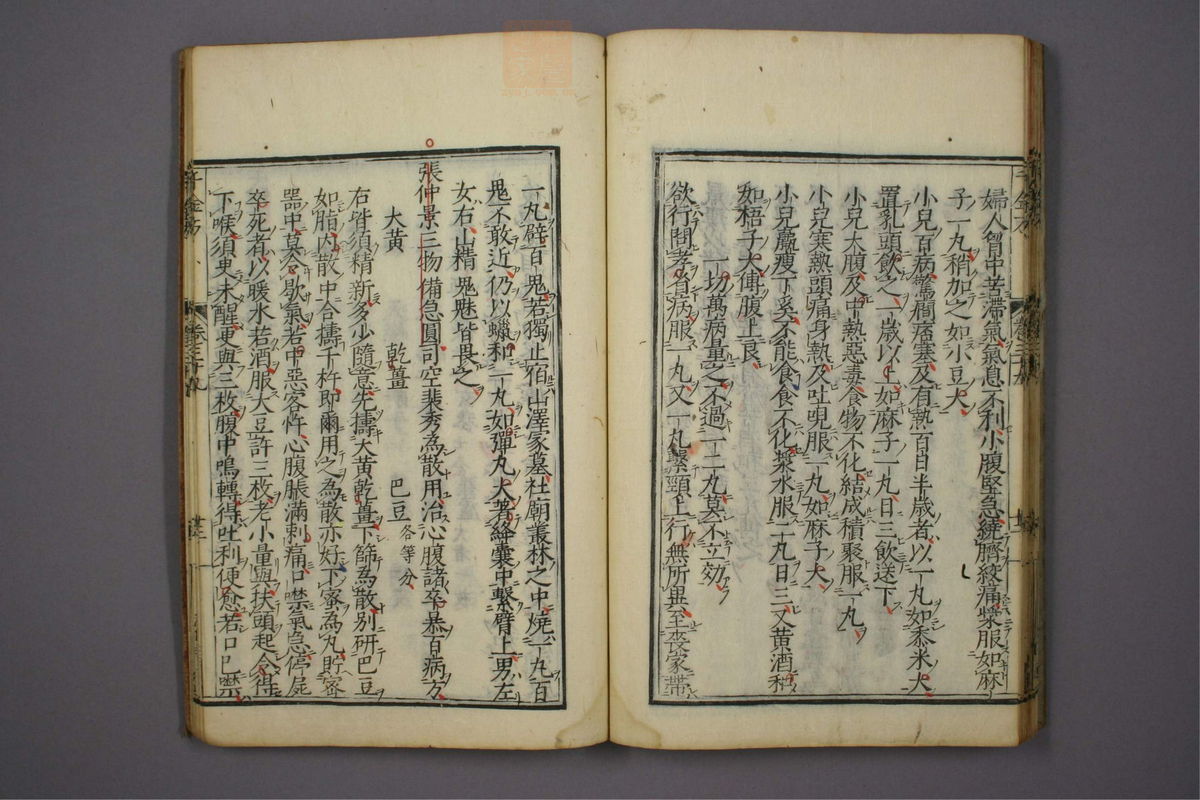 婦人胷中苦滯氣氣息不利小腹堅急繞臍絞痛漿服如麻
子一丸稍加之如小豆大
小兒百病驚癎痞塞及有熱百日半歲者以一丸如黍米大
置乳頭飲之一歲以上如麻子一丸日三飲送下
小兒大腹及中熱惡毒食物不化結成積聚服一丸
小兒寒熱頭痛身熱及吐哯服一丸如麻子大
小兒羸瘦丁奚不能食食不化漿水服二丸日三又黃酒和
如梧子大傅腹上良
一切萬病量之不過一二丸莫不立効
欲行問孝省病服一丸又一丸繫頸上行無所畏至喪家帶
一丸辟百鬼若獨止宿山澤冢墓社廟叢林之中燒一丸百
鬼不敢近仍以蠟和一丸如彈丸大著絳囊中繫臂上男左
女右山精鬼魅皆畏之
張仲景三物備急圓司空裴秀為散用治心腹諸卒暴百病方
大黃 乾薑 巴豆各等分
右皆須精新多少隨意先擣大黃乾薑下篩為散別研巴豆
如脂內散中合擣千杵即爾用之為散亦好下蜜為丸貯密
器中莫令歇氣若中惡客忤心腹脹滿刺痛口噤氣急停屍
卒死者以暖水若酒服大豆許三枚老小量與扶頭起令得
下喉須臾未醒更與三枚腹中鳴轉得吐利便愈若口已噤
千金方
卷三十九